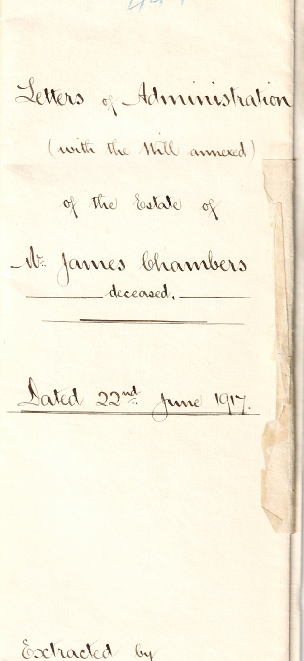 Letters of Administration
(with the Will annexed)
of the Estate of
Mr. James Chambers
deceased.
Dated 22nd June 1917.
Extracted by